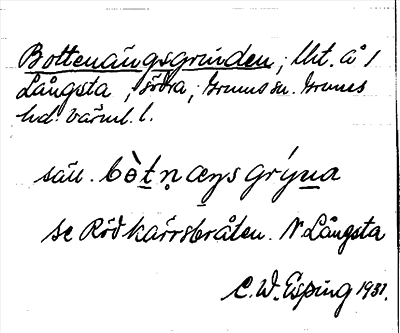 Bottenängsgrinden; lht. å 1
Långsta, södra; Grums sn. Grums
hd. Värml. l.
säu. bòt̠ṇ æŋs grýn̠a
se Rödkärrsbråten. N Långsta
C. W. Esping 1931.